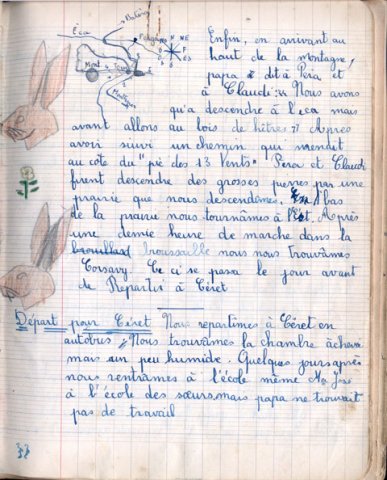 Batère
Éca
N NE
Mont 4 Tours
E
S
Montagne
Enfin, en arrivant au
haut de la montagne,
papa a dit à Pera et
à Claudi: "Nous avons
qu'a descendre à l'Eca mais
avant allons au bois de hêtres". Après
avoir suivi un chemin qui menait
au côté du "pic des 13 Vents" Pera et Claudi
firent descendre des grosses pierres par une
prairie que nous descendîmes. A bas
de la prairie nous tournâmes à l'Est. Après
une demie heure de marche dans la
brouillard broussaille nous nous trouvâmes
Corsavy. Ce ci se passa le jour avant
de Repartir à Céret
Départ pour Céret Nous repartîmes à Céret en
autobus. Nous trouvâmes la chambre
mais un peu humide. Quelques jours après
nous rentrâmes à l'école même
à l'école des sœurs mais papa ne trouvait
pas de travail